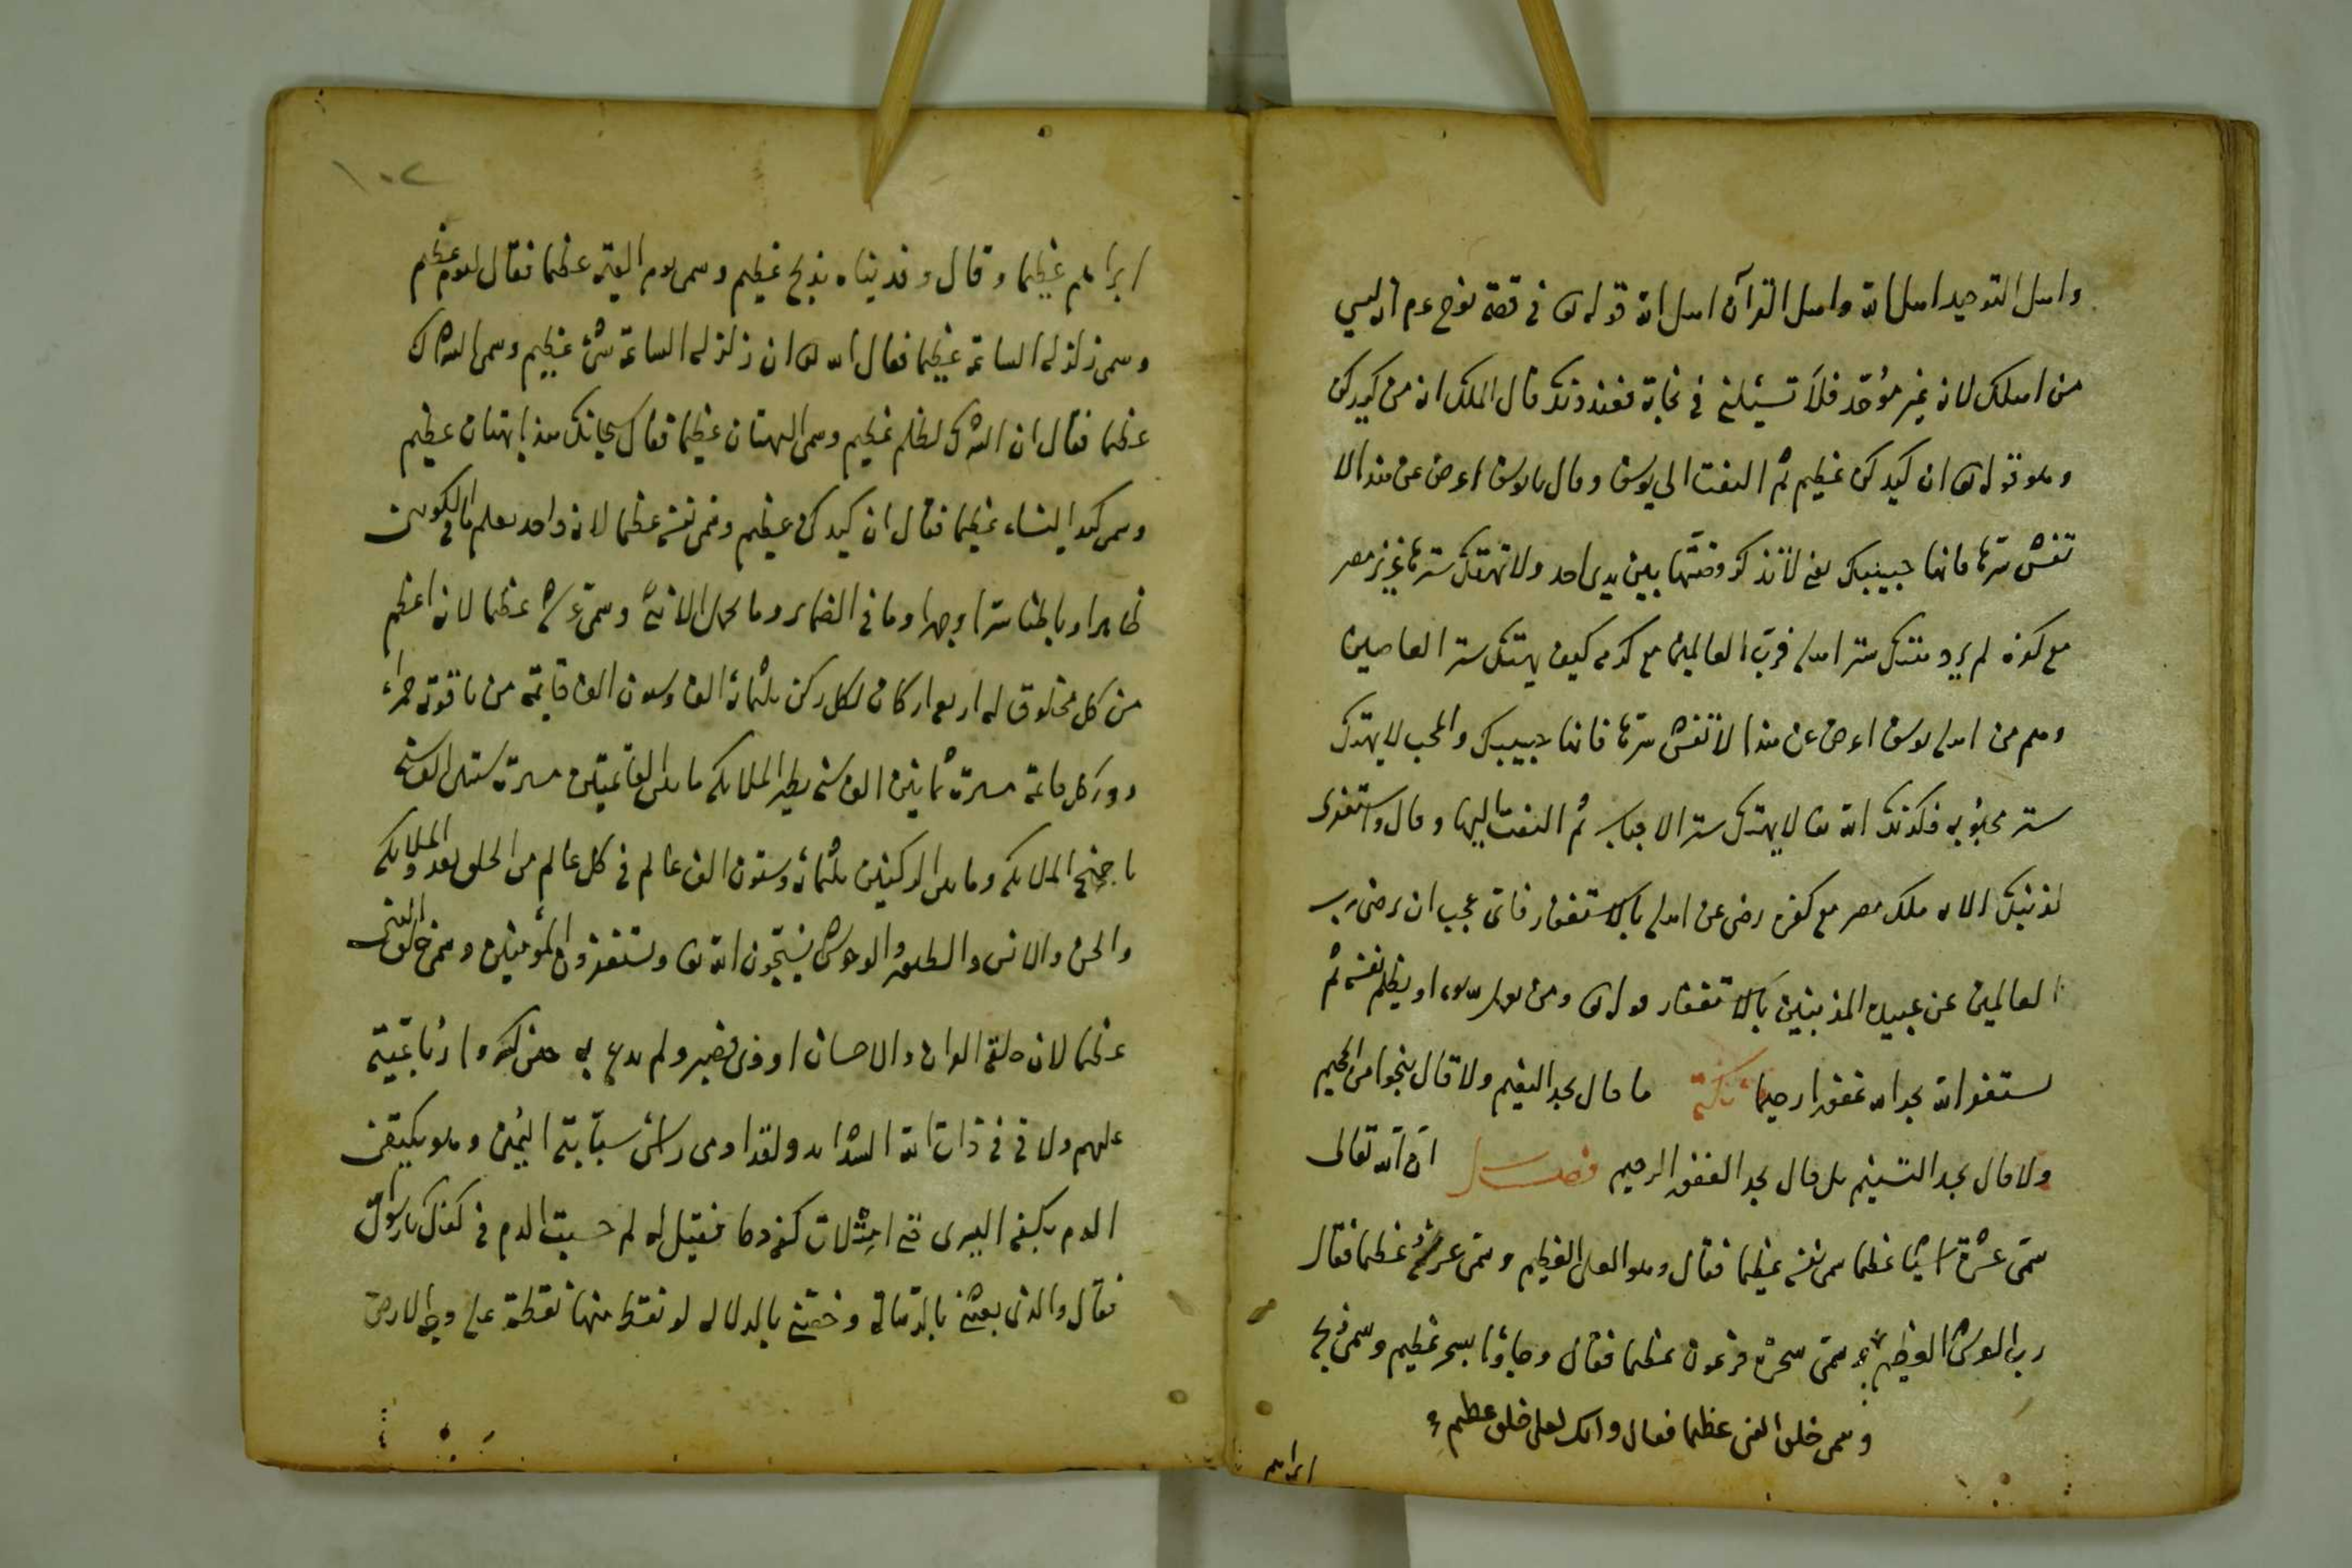 واهل التوحيد اهل الله واهل القرآن اهل الله قوله تع في قصة نوح عم انه ليس
من اهلك لانه غير موحّد فلا تسئلني في نجاته فعند ذلك قال الملك انه من كيدكن
وهو قوله تع ان كيدكن عظيم ثم التفت الى يوسف وقال يا يوسف اعرض عن هذا لا
تفش سرّها فانها حبيبتك يعني لا تذكر قصّتها بين يدى احد ولا تهتك سترها عزيز مصر
مع كفره لم يرد هتك ستر اهله فربّ العالمين مع كرمه كيف يهتك ستر العاصين
وهم من اهله يوسف اعرض عن هذا لا تفش سرّها فانها حبيبك والمحب لا يهتك
ستر محبوبه فكذلك الله تعا لا يهتك ستر الاحباب ثم التفت اليها وقال واستغفرى
لذنبك الاية ملك مصر مع كفره رضى عن اهله بالاستغفار فاى عجب ان رضى رب
العالمين عن عبيده المذنبين بالاستغفار قوله تع ومن يعمل سوء او يظلم نفسه ثم
يستغفر الله يجد الله غفورا رحيما نكتة ما قال يجد النعيم ولا قال ينجوا من الجحيم
ولا قال يجد التسنيم بل قال يجد الغفور الرحيم فصل انّ الله تعالى
سمّى عشرة اشيا عظيما سمى نفسه عظيما فقال وهو العلى العظيم وسمّى عرشه عظيما فقال
رب العرش العظيم وسمّى سحرة فرعون عظيما فقال وجاؤا بسحر عظيم وسمى ذبح
وسمى خلق النبى عظيما فقال وانك لعلى خلق عظيم
ابراهيم
١٠٢
ابراهيم عظيما وقال وفديناه بذبح عظيم وسمى يوم القيمة عظيما فقال ليوم عظيم
وسمى زلزلة الساعة عظيما فقال الله تع ان زلزلة الساعة شئ عظيم وسمى الشرك
عظيما فقال ان الشرك لظلم عظيم وسمى البهتان عظيما فقال سبحانك هذا بهتان عظيم
وسمى كيد النساء عظيما فقال ان كيدكن عظيم وسمى نفسه عظيما لانه واحد يعلم ما في الكونين
ظاهرا وباطنا سرّا وجهرا وما في الضماير وما تحمل الانثى وسمّى عرشه عظيما لانه اعظم
من كل مخلوق له اربع اركان لكل ركن ثلثمائة الف وستون الف قايمة من ياقوتة حمراء
دور كل قائمة مسيرة ثمانين الف سنه يطير الملايكه ما بين القائمتين مسيرة ستين الف سنة
باجنحة الملايكه وما بين الركنين ثلثمائة وستون الف عالم في كل عالم من الخلق بعدد الملايكه
والجن والانس والطيور والوحوش يسبّحون الله تعا ويستغفرون للمؤمنين وسمى خلق النبى
عظيما لان خلقه الوان والاحسان اوذى فصبر ولم يدع به حين كسروا رباعيّته
عليهم ولاقى في ذات الله الشدايد ولقد اومى رأس سبّابته اليمين وهو يكيف
الدم بكفه اليسرى حتى امتلات كفه دما فقيل له لم حسبت الدم في كفك يا رسول
فقال والذى بعثني بالرّسالة وخصّني بالدلالة لو نقط منها نقطة على وجه الارض